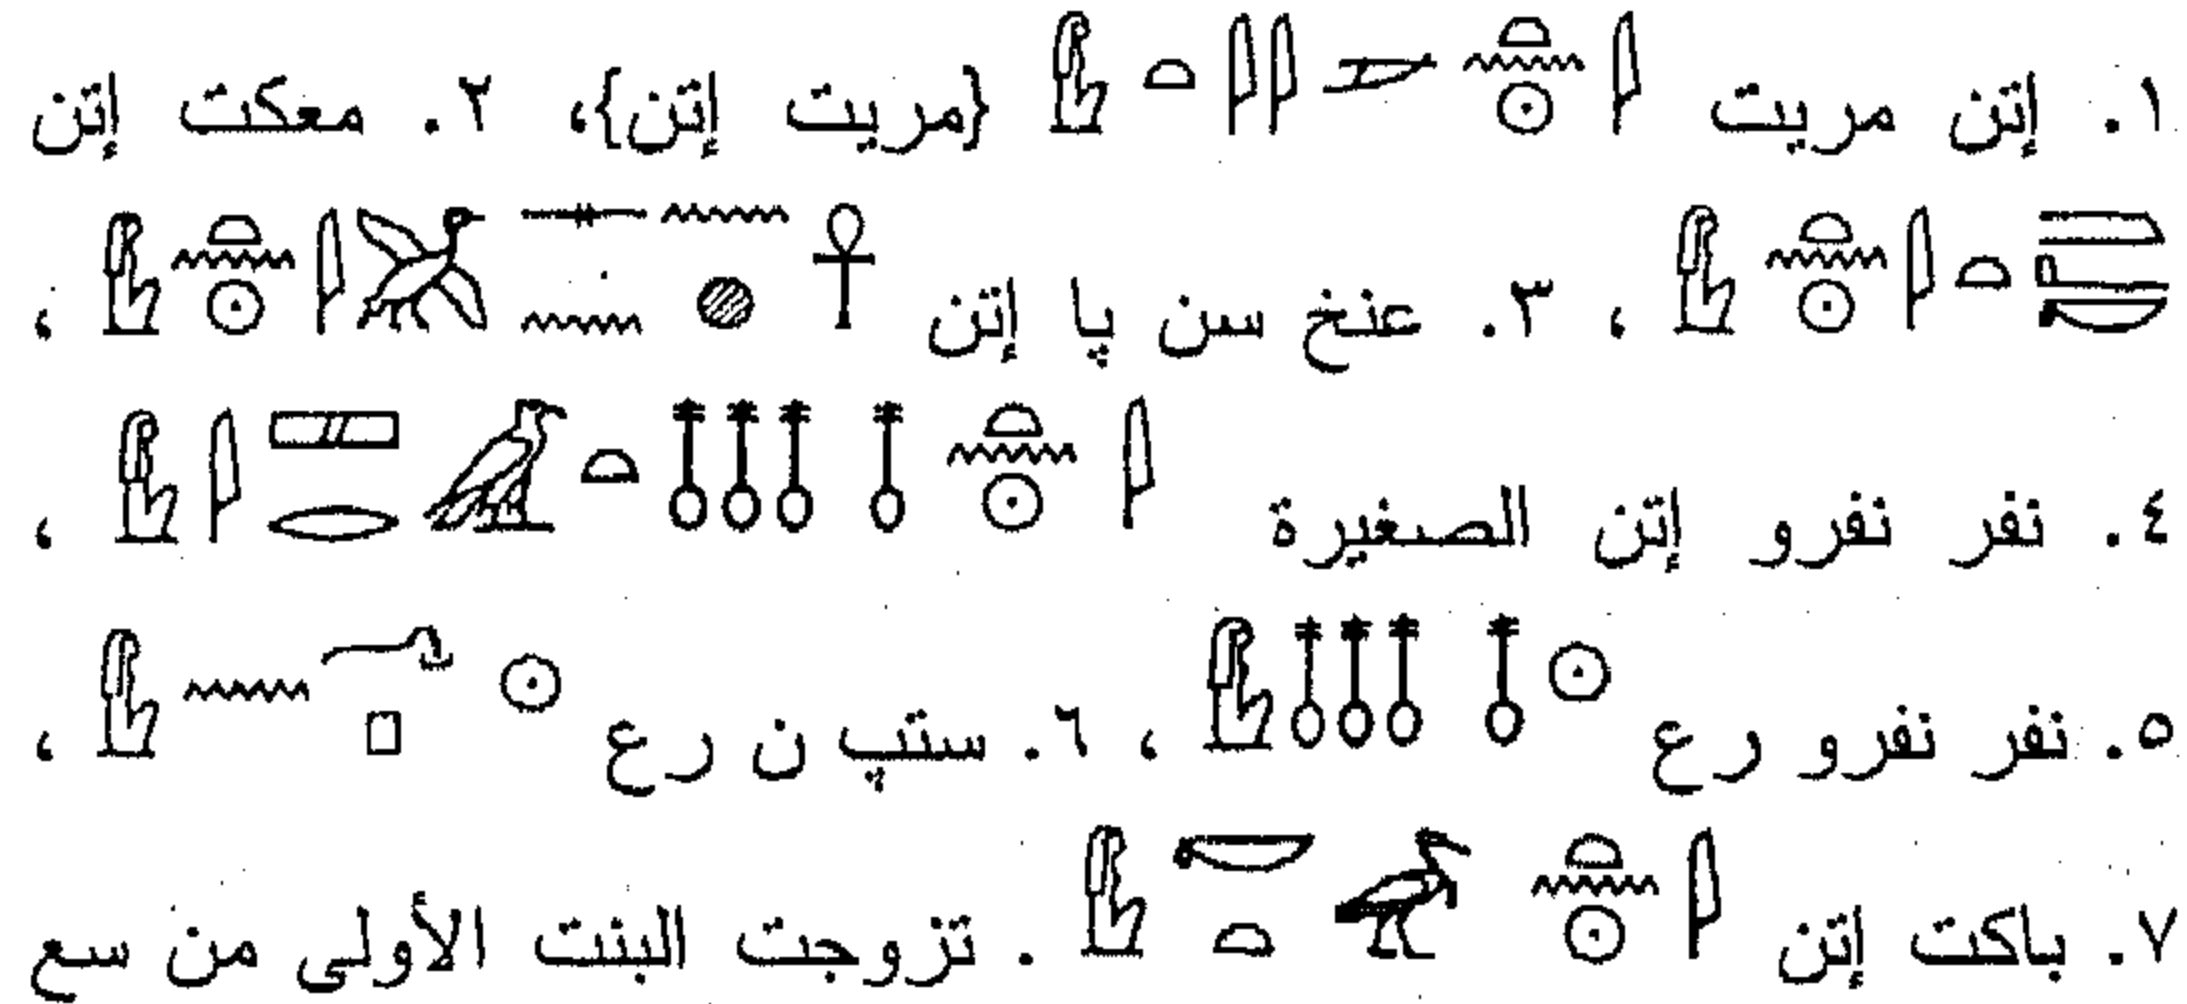 ١. إتن مريت {مريت إتن}، ٢. معكت إتن
، ٣. عنخ سن پا إتن ،
٤. نفر نفرو إتن الصغيرة ،
٥. نفر نفرو رع ، ٦. ستپ ن رع ،
٧. باكت إتن . تزوجت البنت الأولى من سع